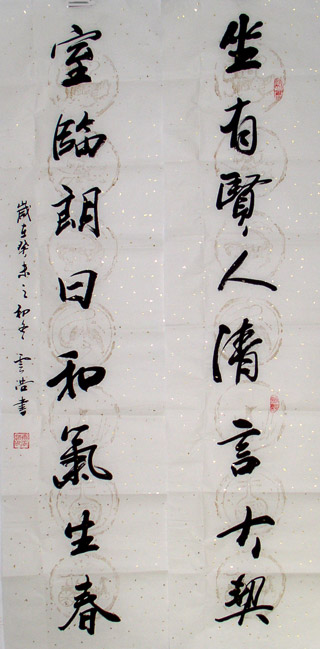 坐有賢人清言大契
室臨朗日和氣生春
歲在癸未之初冬 雲浩書